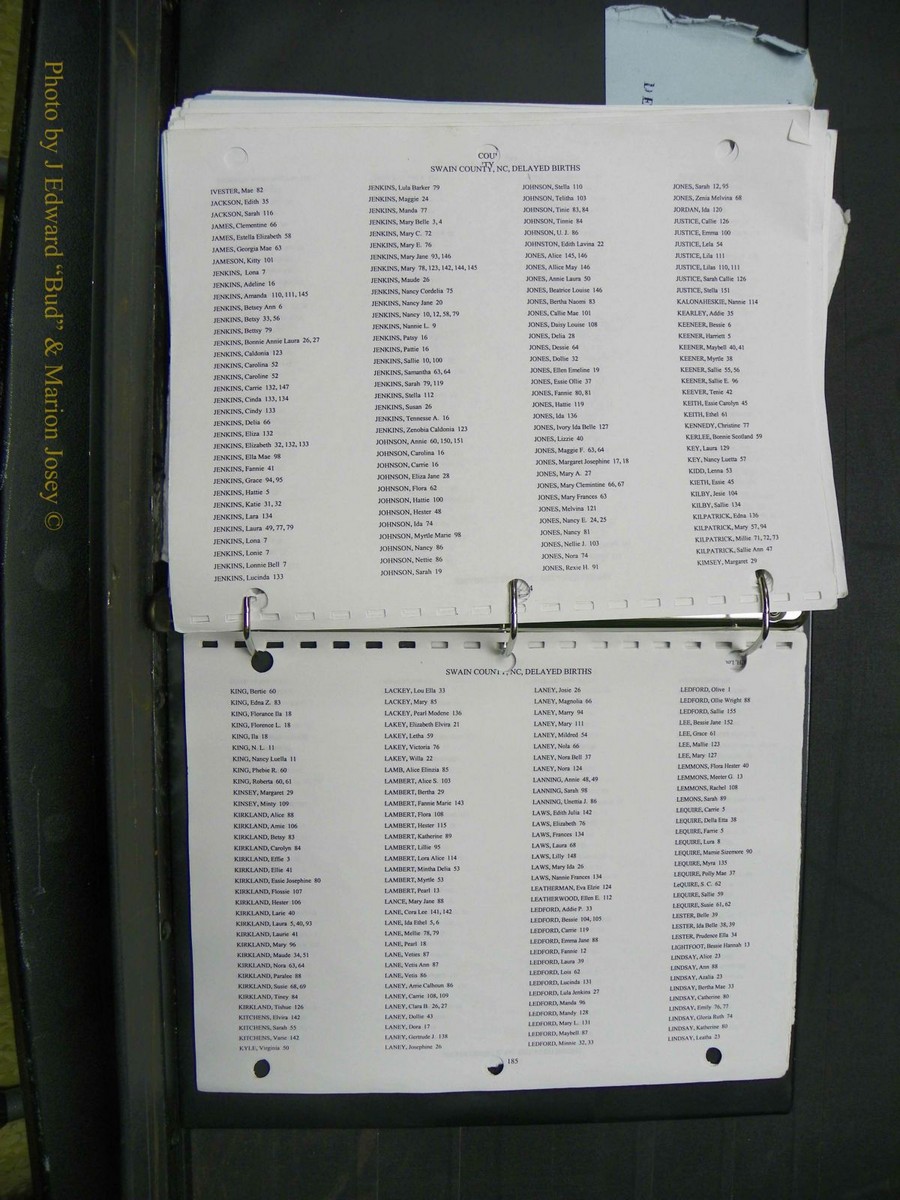 Photo by J Edward "Bud" & Marion Josey ©
SWAIN COUNTY, NC, DELAYED BIRTHS
IVESTER, Mae 82
JACKSON, Edith 35
JACKSON, Sarah 116
JAMES, Clementine 66
JAMES, Estella Elizabeth 58
JAMES, Georgia Mae 63
JAMESON, Kitty 101
JENKINS, Lona 7
JENKINS, Adeline 16
JENKINS, Amanda 110, 111, 145
JENKINS, Betsey Ann 6
JENKINS, Betsy 33, 56
JENKINS, Bettsy 79
JENKINS, Bonnie Annie Laura 26, 27
JENKINS, Caldonia 123
JENKINS, Carolina 52
JENKINS, Caroline 52
JENKINS, Carrie 132, 147
JENKINS, Cinda 133, 134
JENKINS, Cindy 133
JENKINS, Delia 66
JENKINS, Eliza 132
JENKINS, Elizabeth 32, 132, 133
JENKINS, Ella Mae 98
JENKINS, Fannie 41
JENKINS, Grace 94, 95
JENKINS, Hattie 5
JENKINS, Katie 31, 32
JENKINS, Lara 134
JENKINS, Laura 49, 77, 79
JENKINS, Lona 7
JENKINS, Lonie 7
JENKINS, Lonnie Bell 7
JENKINS, Lucinda 133
JENKINS, Lula Barker 79
JENKINS, Maggie 24
JENKINS, Manda 77
JENKINS, Mary Belle 3, 4
JENKINS, Mary C. 72
JENKINS, Mary E. 76
JENKINS, Mary Jane 93, 146
JENKINS, Mary 78, 123, 142, 144, 145
JENKINS, Maude 26
JENKINS, Nancy Cordelia 75
JENKINS, Nancy Jane 20
JENKINS, Nancy 10, 12, 58, 79
JENKINS, Nannie L. 9
JENKINS, Patsy 16
JENKINS, Pattie 16
JENKINS, Sallie 10, 100
JENKINS, Samantha 63, 64
JENKINS, Sarah 79, 119
JENKINS, Stella 112
JENKINS, Susan 26
JENKINS, Tennesse A. 16
JENKINS, Zenobia Caldonia 123
JOHNSON, Annie 60, 150, 151
JOHNSON, Carolina 16
JOHNSON, Carrie 16
JOHNSON, Eliza Jane 28
JOHNSON, Flora 62
JOHNSON, Hattie 100
JOHNSON, Hester 48
JOHNSON, Ida 74
JOHNSON, Myrtle Marie 98
JOHNSON, Nancy 86
JOHNSON, Nettie 86
JOHNSON, Sarah 19
JOHNSON, Stella 110
JOHNSON, Telitha 103
JOHNSON, Tinie 83, 84
JOHNSON, Tinnie 84
JOHNSON, U. J. 86
JOHNSTON, Edith Lavina 22
JONES, Alice 145, 146
JONES, Allice May 146
JONES, Annie Laura 50
JONES, Beatrice Louise 146
JONES, Bertha Naomi 83
JONES, Callie Mae 101
JONES, Daisy Louise 108
JONES, Delia 28
JONES, Dessie 64
JONES, Dollie 32
JONES, Ellen Emeline 19
JONES, Essie Ollie 37
JONES, Fannie 80, 81
JONES, Hattie 119
JONES, Ida 136
JONES, Ivory Ida Belle 127
JONES, Lizzie 40
JONES, Maggie F. 63, 64
JONES, Margaret Josephine 17, 18
JONES, Mary A. 27
JONES, Mary Clemintine 66, 67
JONES, Mary Frances 63
JONES, Melvina 121
JONES, Nancy E. 24, 25
JONES, Nancy 81
JONES, Nellie J. 103
JONES, Nora 74
JONES, Rexie H. 91
JONES, Sarah 12, 95
JONES, Zenia Melvina 68
JORDAN, Ida 120
JUSTICE, Callie 126
JUSTICE, Emma 100
JUSTICE, Lela 54
JUSTICE, Lila 111
JUSTICE, Lilas 110, 111
JUSTICE, Sarah Callie 126
JUSTICE, Stella 151
KALONAHESKIE, Nannie 114
KEARLEY, Addie 35
KEENEER, Bessie 6
KEENER, Harriett 5
KEENER, Maybell 40, 41
KEENER, Myrtle 38
KEENER, Sallie 55, 56
KEENER, Sallie E. 96
KEEVER, Texie 42
KEITH, Essie Carolyn 45
KEITH, Ethel 61
KENNEDY, Christine 77
KERLEE, Bonnie Scotland 59
KEY, Laura 129
KEY, Nancy Luetta 57
KIDD, Lenna 53
KIETH, Essie 45
KILBY, Jesie 104
KILBY, Sallie 134
KILPATRICK, Edna 136
KILPATRICK, Mary 57, 94
KILPATRICK, Millie 71, 72, 73
KILPATRICK, Sallie Ann 47
KIMSEY, Margaret 29
SWAIN COUNTY, NC, DELAYED BIRTHS
KING, Bertie 60
KING, Edna Z. 83
KING, Florance Ila 18
KING, Florence L. 18
KING, Ila 18
KING, N. L. 11
KING, Nancy Luella 11
KING, Phebie R. 60
KING, Roberta 60, 61
KINSEY, Margaret 29
KINSEY, Minty 109
KIRKLAND, Alice 88
KIRKLAND, Amie 106
KIRKLAND, Betsy 83
KIRKLAND, Carolyn 84
KIRKLAND, Effie 3
KIRKLAND, Ellie 41
KIRKLAND, Essie Josephine 80
KIRKLAND, Flossie 107
KIRKLAND, Hester 106
KIRKLAND, Larie 40
KIRKLAND, Laura 5, 40, 93
KIRKLAND, Laurie 41
KIRKLAND, Mary 96
KIRKLAND, Maude 34, 51
KIRKLAND, Nora 63, 64
KIRKLAND, Paralee 88
KIRKLAND, Susie 68, 69
KIRKLAND, Tiney 84
KIRKLAND, Tishue 126
KITCHENS, Elvira 142
KITCHENS, Sarah 55
KITCHENS, Varie 142
KYLE, Virginia 50
LACKEY, Lou Ella 33
LACKEY, Mary 85
LACKEY, Pearl Modene 136
LAKEY, Elizabeth Elvira 21
LAKEY, Letha 59
LAKEY, Victoria 76
LAKEY, Willa 22
LAMB, Alice Elinzia 85
LAMBERT, Alice S. 103
LAMBERT, Bertha 29
LAMBERT, Fannie Marie 143
LAMBERT, Flora 108
LAMBERT, Hester 115
LAMBERT, Katherine 89
LAMBERT, Lillie 95
LAMBERT, Lora Alice 114
LAMBERT, Mintha Delia 53
LAMBERT, Myrtle 53
LAMBERT, Pearl 13
LANCE, Mary Jane 88
LANE, Cora Lee 141, 142
LANE, Ida Ethel 5, 6
LANE, Mellie 78, 79
LANE, Pearl 18
LANE, Veties 87
LANE, Vetis Ann 87
LANE, Vetis 86
LANEY, Amie Calhoun 86
LANEY, Carrie 108, 109
LANEY, Clara B. 26, 27
LANEY, Dollie 43
LANEY, Dora 17
LANEY, Gertrude J. 138
LANEY, Josephine 26
LANEY, Josie 26
LANEY, Magnolia 66
LANEY, Marry 94
LANEY, Mary 111
LANEY, Mildred 54
LANEY, Nola 66
LANEY, Nora Bell 37
LANEY, Nora 124
LANNING, Annie 48, 49
LANNING, Sarah 98
LANNING, Unettia J. 86
LAWS, Edith Julia 142
LAWS, Elizabeth 76
LAWS, Frances 134
LAWS, Laura 68
LAWS, Lilly 148
LAWS, Mary Ida 26
LAWS, Nannie Frances 134
LEATHERMAN, Eva Elzie 124
LEATHERWOOD, Ellen E. 112
LEDFORD, Addie P. 33
LEDFORD, Bessie 104, 105
LEDFORD, Carrie 119
LEDFORD, Emma Jane 88
LEDFORD, Fannie 12
LEDFORD, Laura 39
LEDFORD, Lois 62
LEDFORD, Lucinda 131
LEDFORD, Lula Jenkins 27
LEDFORD, Manda 96
LEDFORD, Mandy 128
LEDFORD, Mary L. 131
LEDFORD, Maybell 87
LEDFORD, Minnie 32, 33
LEDFORD, Olive 1
LEDFORD, Ollie Wright 88
LEDFORD, Sallie 155
LEE, Bessie Jane 152
LEE, Grace 61
LEE, Mallie 123
LEE, Mary 127
LEMMONS, Flora Hester 40
LEMMONS, Meeter G. 13
LEMMONS, Rachel 108
LEMONS, Sarah 89
LEQUIRE, Carrie 5
LEQUIRE, Della Etta 38
LEQUIRE, Farrie 5
LEQUIRE, Lora 8
LEQUIRE, Mamie Sizemore 90
LEQUIRE, Myra 135
LEQUIRE, Polly Max 37
LeQUIRE, S. C. 62
LEQUIRE, Sallie 59
LEQUIRE, Susie 61, 62
LESTER, Belle 39
LESTER, Ida Belle 38, 39
LESTER, Prudence Ella 34
LIGHTFOOT, Bessie Hannah 13
LINDSAY, Alice 23
LINDSAY, Ann 88
LINDSAY, Azalia 23
LINDSAY, Bertha Mae 33
LINDSAY, Catherine 80
LINDSAY, Emily 76, 77
LINDSAY, Gloria Ruth 74
LINDSAY, Katherine 80
LINDSAY, Leatha 23
185